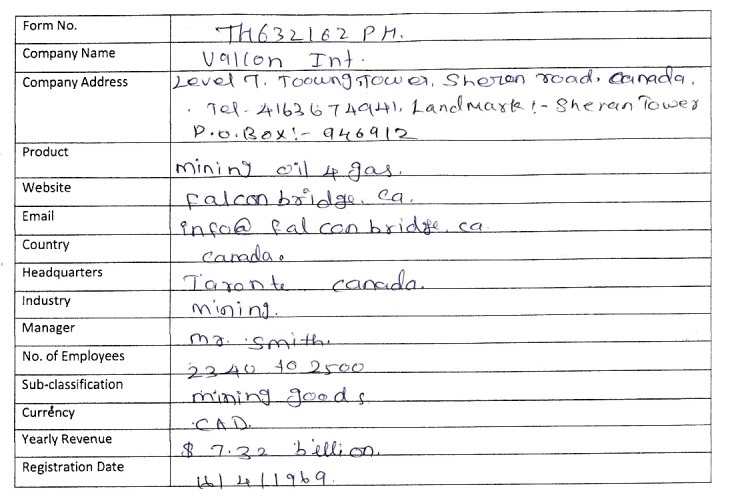 Form No. TH632162 PM.
Company Name Valcon Int.
Company Address Level 7, Toowng Tower, Sheran road, Canada.
Tel- 4163674941, Landmark :- Sheran Tower
P.O.Box:- 946912
Product mining oil & gas.
Website falconbridge.ca.
Email info@falconbridge.ca
Country Canada.
Headquarters Taronte Canada.
Industry Mining.
Manager Mr. Smith.
No. of Employees 2340 to 2500
Sub-classification mining goods
Currency CAD.
Yearly Revenue $ 7.32 billion.
Registration Date 16/4/1969.